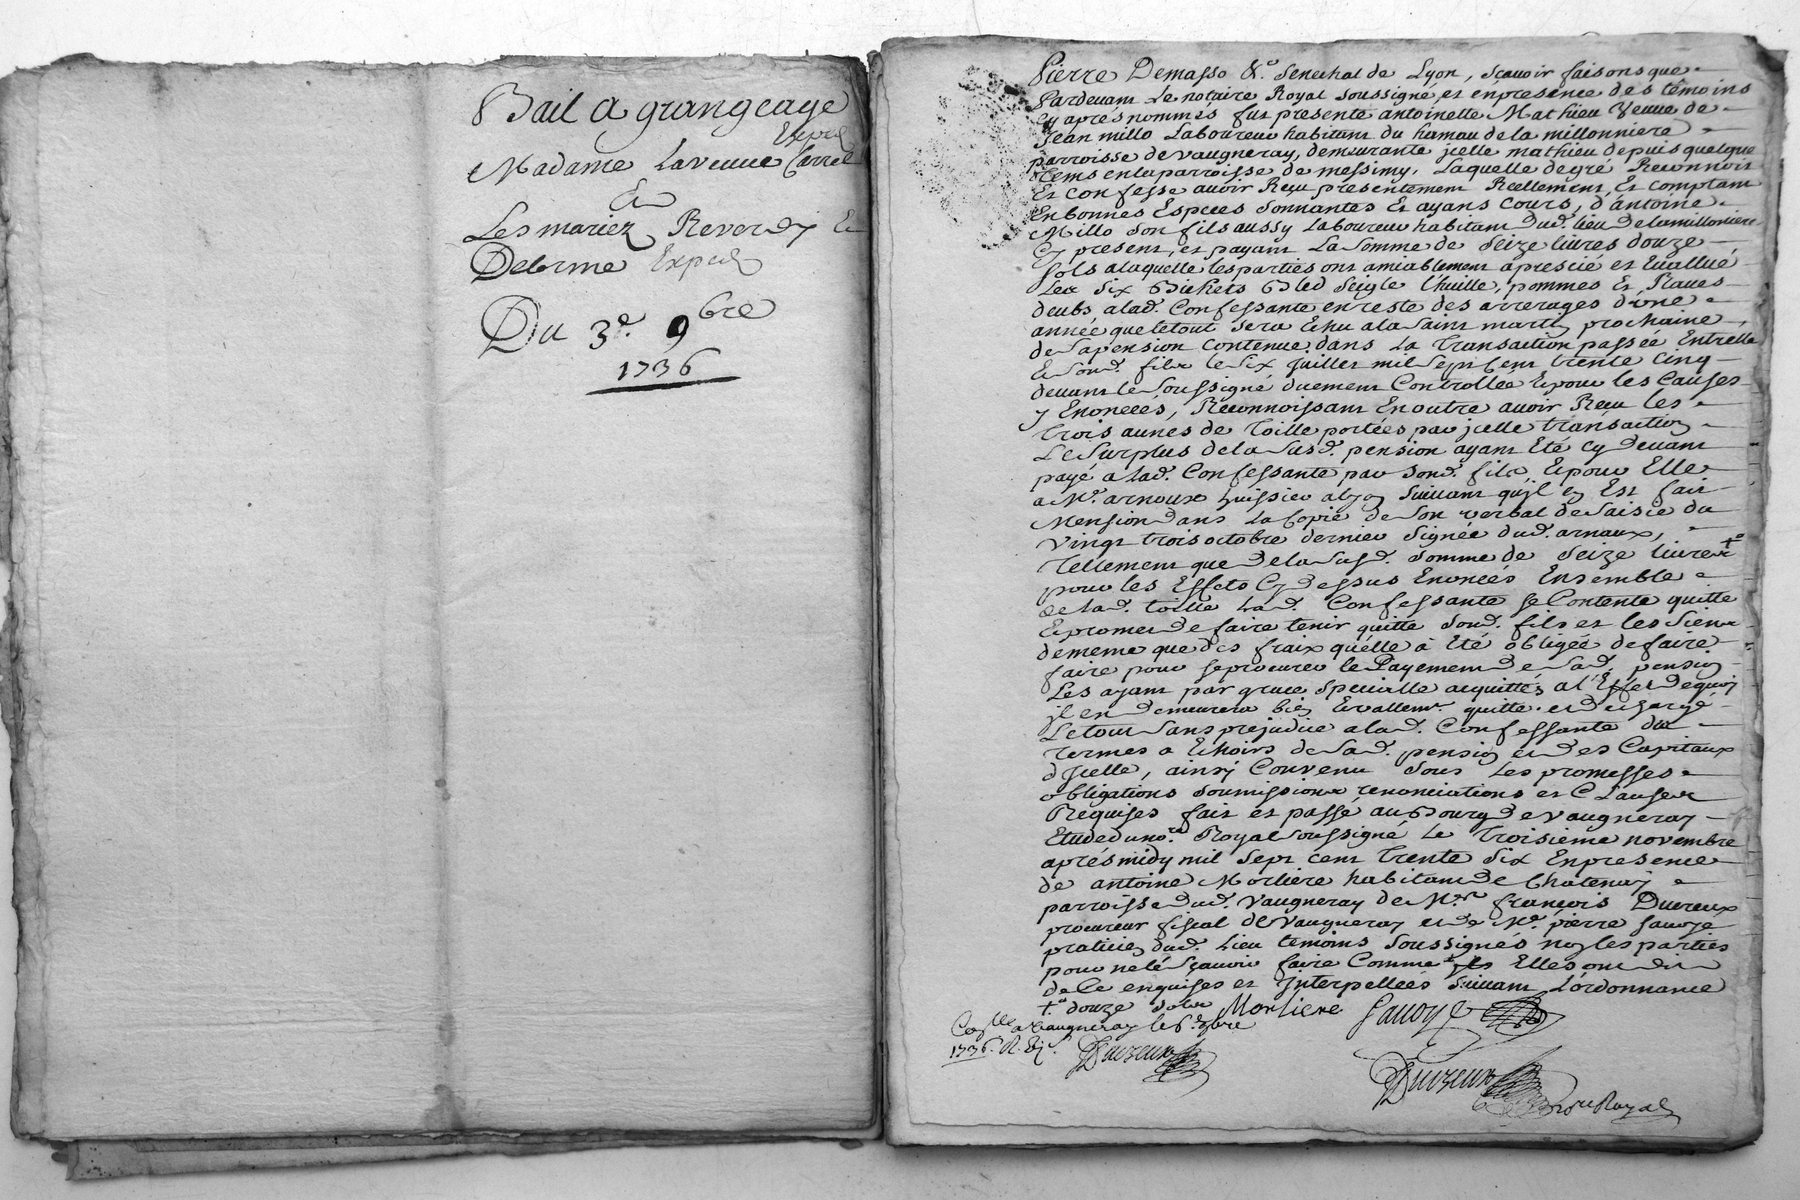 Bail a grangeage
Expé
Madame Laveuve Carret
Les mariez Reverdy Et
Delorme Expedi
Du 3e. 9bre
1736
Pierre Demasso &c. senechal de Lyon, sçavoir faisons que
Pardevant Le notaire Royal soussigné et enpresence des témoins
Cy apres nommés fut presente antoinette Mathieu Veuve de
Jean millo Laboureur habitant du hamau de la millonniere
parroisse de vaugneray, demeurante jcelle mathieu depuis quelque
tems en la parroisse de messimy, Laquelle degré Reconnoit
Et confesse avoir Reçu presentement Réellement Et comptant
En bonnes Especes sonnantes Et ayans cours, d'antoine
Millo son fils aussy Laboureur habitant dud. lieu de la millonniere
Cy present, et payant La somme de seize livres douze
sols alaquelle les parties ont amiablement aprescié et Evallué
Les six Bichets Bléd seigle l'huille, pommes Et Raves
deubs alad. Confessante en reste des arrerages d'une
année que le tout sera Echu a la saint martin prochaine
de sa pension contenue dans La Transaction passée Entrelle
Et sond. fils le six juillet mil sept Cent trente cinq
devant le soussigné duement Controllée Et pour les Causes
y Enoncées, Reconnoissant En outre avoir Reçu les
trois aunes de Toille portées par jcelle transaction
Le surplus de la susd. pension ayant Eté cy devant
payé a lad. Confessante par sond. fils Et pour Elle
a Me. arnoux huissier a lyon suivant qu'jl en Est fait
Mension dans La Copie de son verbal de saisie du
vingt trois octobre dernier signée dud. arnaux,
Tellement que de la susd. somme de seize livres +
pour les Effets Cy dessus Enoncés Ensemble
de lad. toille Lad. Confessante se Contente quitte
Et promet de faire tenir quitte sond. fils et les siens
de meme que des fraix qu'elle à Eté obligée de faire
faire pour se procurer le Payement de sad. pension
Les ayant par grace specialle acquittés a l'Effet de quoy
jl en demeurera bien Et vallemt. quitte et dechargé
Le tout sans préjudice a lad. Confessante du
termes a Echoirs de sad. pension et des Capitaux
d'jcelle, ainsy Convenu sous Les promesses
obligations soumissions renonciations et Clauses
Requises fait et passé au Bourg de vaugneray
Etude du nore. Royal soussigné le Troisieme novembre
aprés midy mil sept cent trente six En presence
de antoine Morliere habitant de Chatenay
parroisse dud. Vaugneray de Me. françois Ducreux
procureur fiscal de Vaugneray et de Me. pierre sauoye
praticien dud. Lieu temoins soussignés non les parties
pour ne le sçavoir faire Comme Elles ont dit
de Ce enquises et Interpellées suivant L'ordonnance
+ douze sols Morliere Sauoye
Conlle. a vaugneray le 6e. 9bre
1736. R.
Ducreux
Ducreux
nore Royal